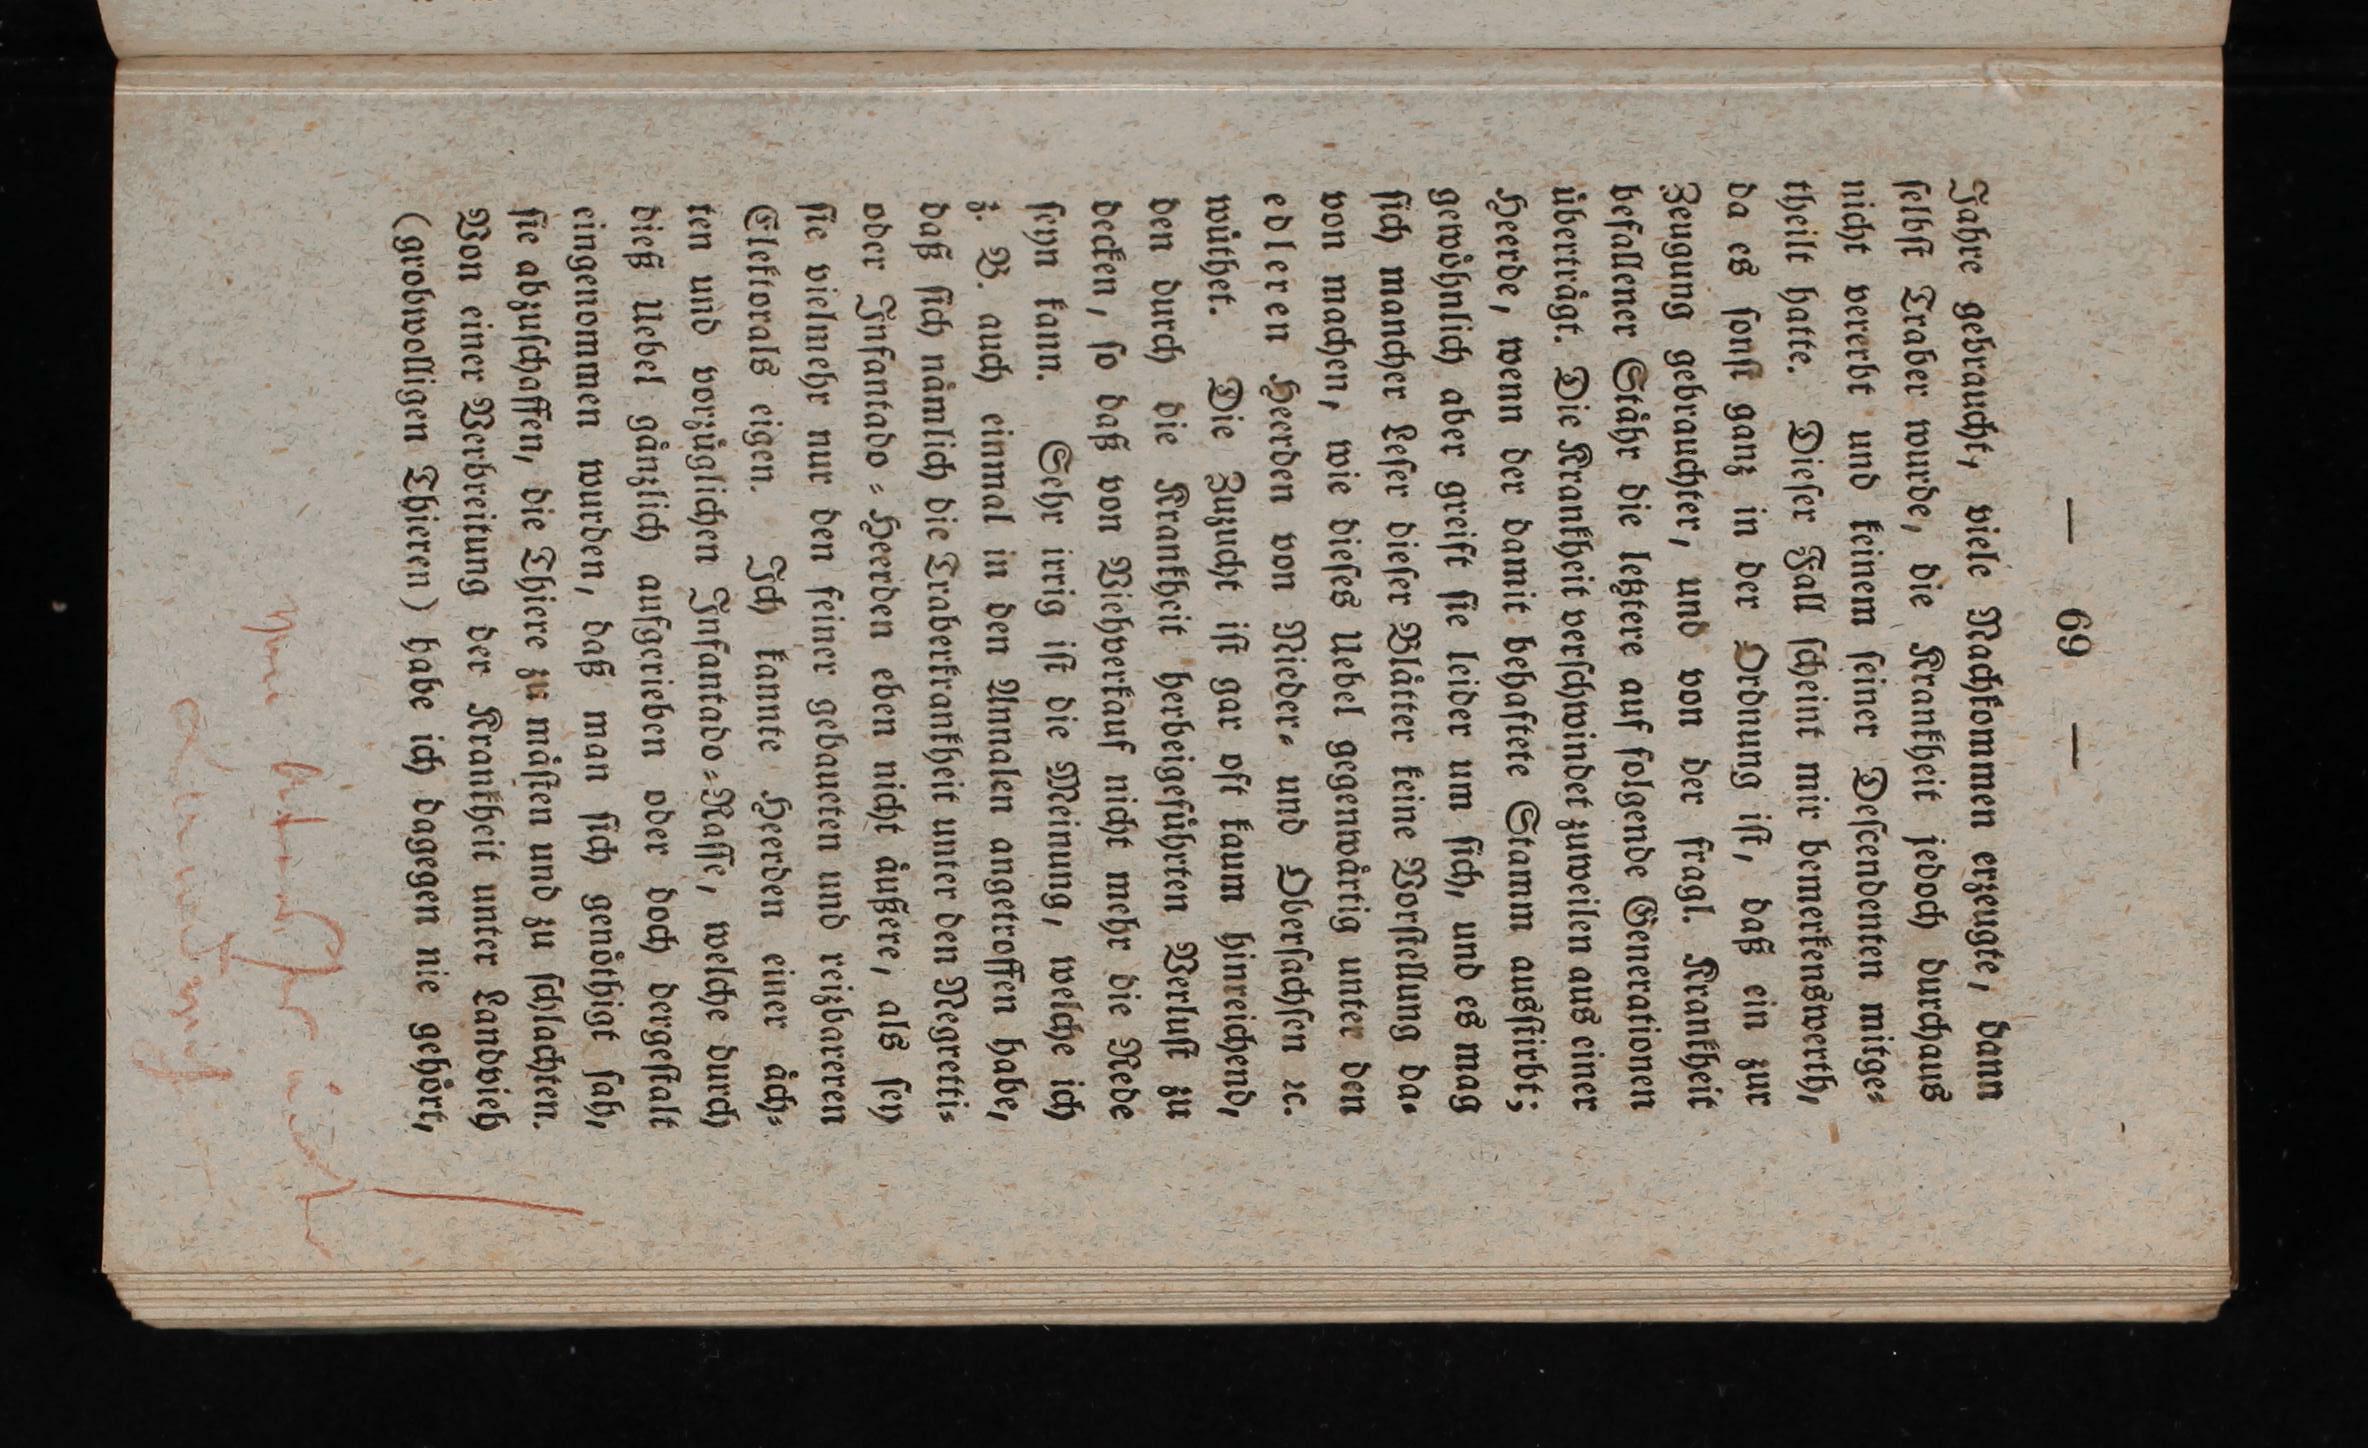 — 69 —
Jahre gebraucht, viele Nachkommen erzeugte, dann
ſelbſt Traber wurde, die Krankheit jedoch durchaus
nicht vererbt und keinem ſeiner Deſcendenten mitge⸗
theilt hatte. Dieſer Fall ſcheint mir bemerkenswerth,
da es ſonſt ganz in der Ordnung iſt, daß ein zur
Zeugung gebrauchter, und von der fragl. Krankheit
befallener Stähr die letztere auf folgende Generationen
überträgt. Die Krankheit verſchwindet zuweilen aus einer
Heerde, wenn der damit behaftete Stamm ausſtirbt;
gewöhnlich aber greift ſie leider um ſich, und es mag
ſich mancher Leſer dieſer Blätter keine Vorſtellung da⸗
von machen, wie dieſes Uebel gegenwärtig unter den
edleren Heerden von Nieder⸗ und Oberſachſen ꝛc.
wüthet. Die Zuzucht iſt gar oft kaum hinreichend,
den durch die Krankheit herbeigeführten Verluſt zu
decken, ſo daß von Viehverkauf nicht mehr die Rede
ſeyn kann. Sehr irrig iſt die Meinung, welche ich
z. B. auch einmal in den Annalen angetroffen habe,
daß ſich nämlich die Traberkrankheit unter den Negretti⸗
oder Infantado⸗Heerden eben nicht äußere, als ſey
ſie vielmehr nur den feiner gebaueten und reizbareren
Elektorals eigen. Ich kannte Heerden einer äch⸗
ten und vorzüglichen Infantado⸗Raſſe, welche durch
dieß Uebel gänzlich aufgerieben oder doch dergeſtalt
eingenommen wurden, daß man ſich genöthigt ſah,
ſie abzuſchaffen, die Thiere zu mäſten und zu ſchlachten.
Von einer Verbreitung der Krankheit unter Landvieh
(grobwolligen Thieren) habe ich dagegen nie gehört,